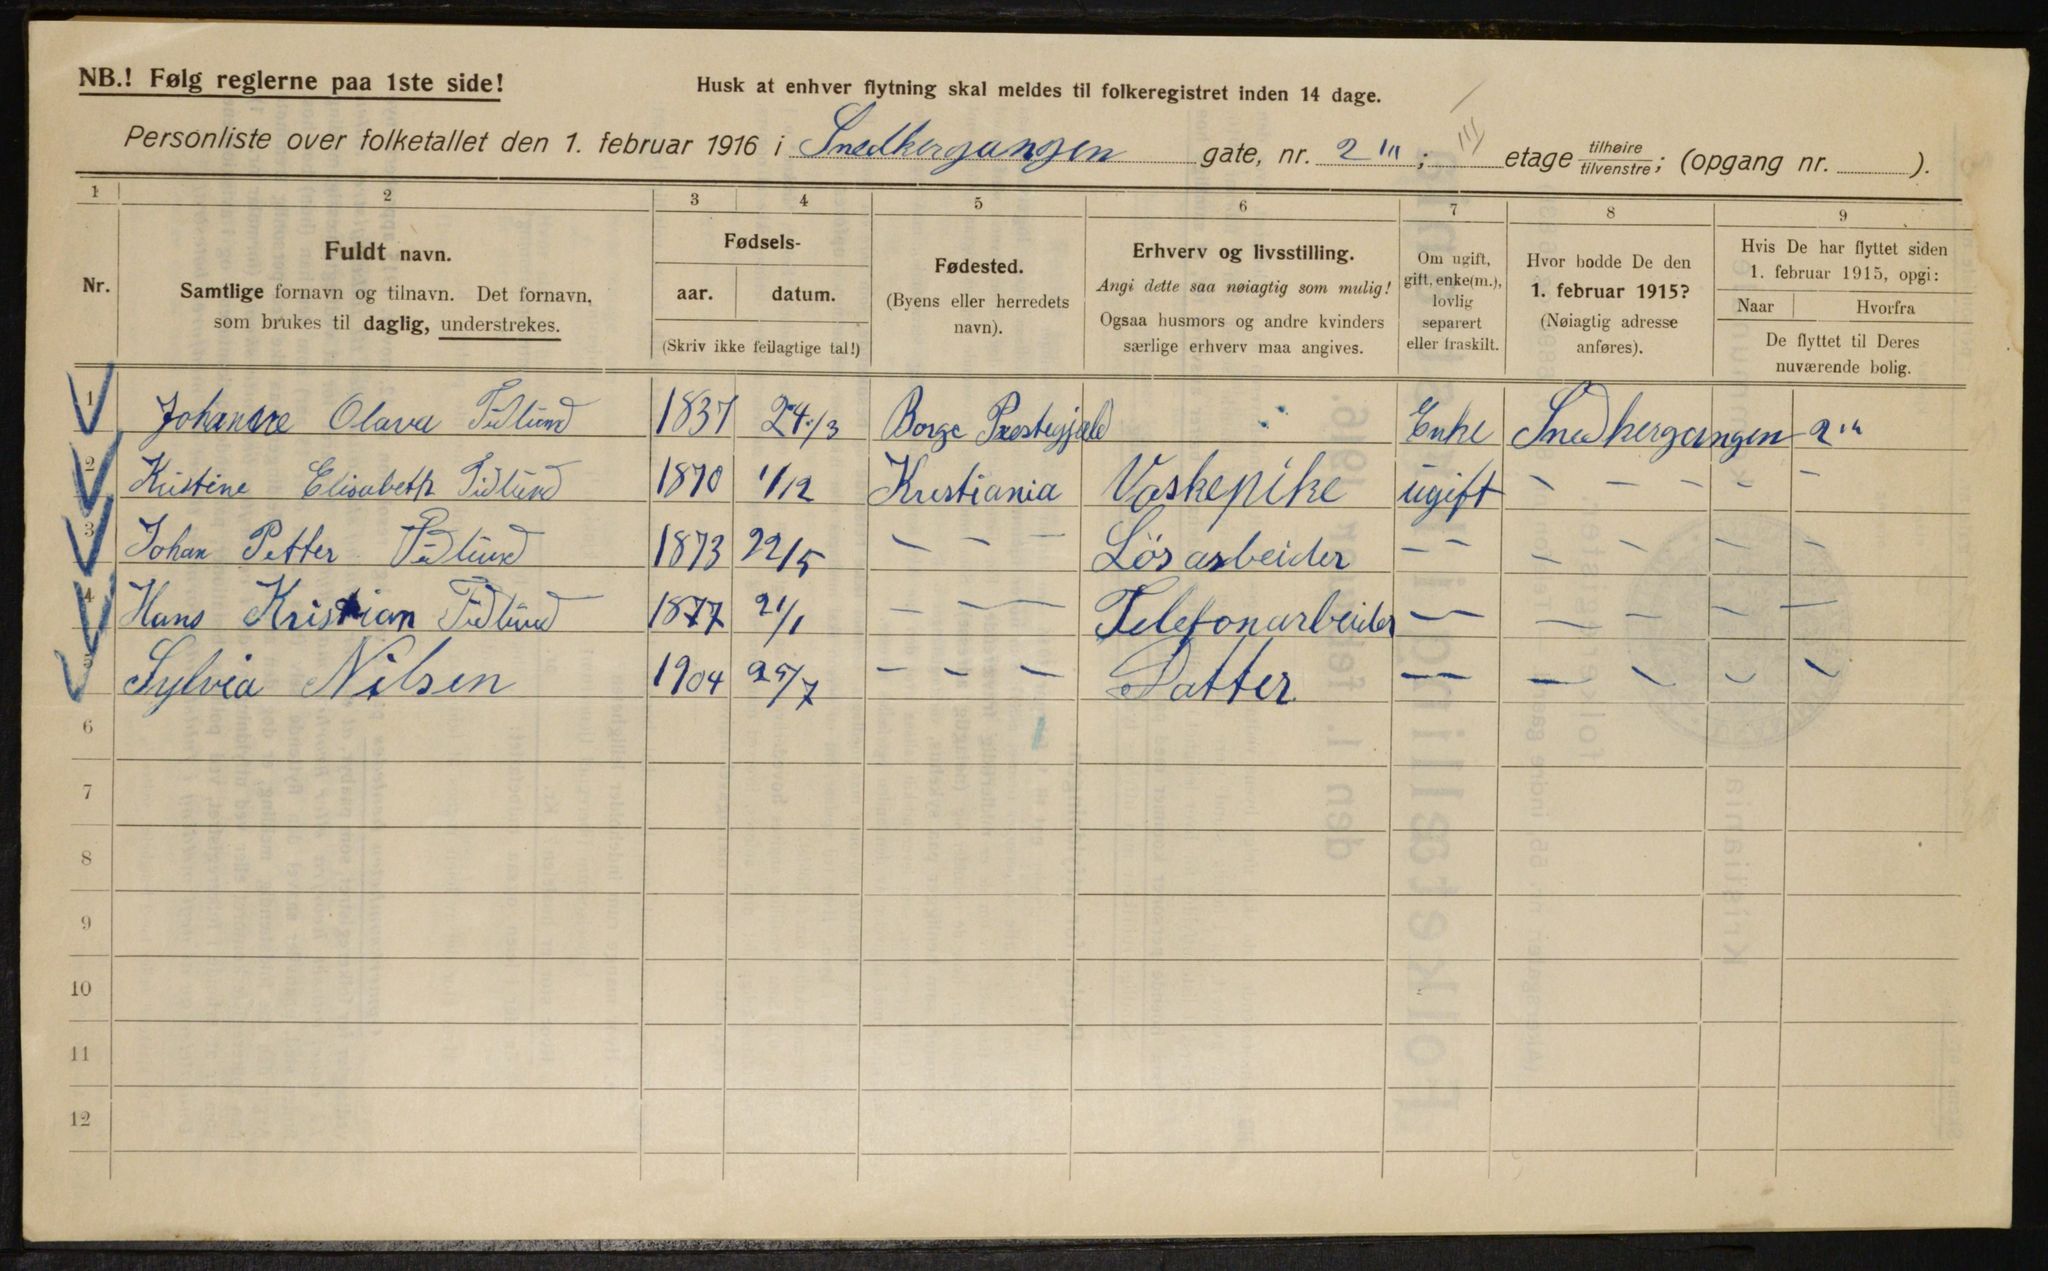 NB.! Følg reglerne paa 1ste side!
Husk at enhver flytning skal meldes til folkeregistret inden 14 dage.
Personliste over folketallet den 1. februar 1916 i Snedkergangen gate, nr. 2 III; III etage tilhøire/tilvenstre; (opgang nr. ).
1 2 3 4 5 6 7 8 9
Nr.
Fuldt navn.
Samtlige fornavn og tilnavn. Det fornavn,
som brukes til daglig, understrekes.
Fødsels-
aar. datum.
(Skriv ikke feilagtige tal!)
Fødested.
(Byens eller herredets
navn).
Erhverv og livsstilling.
Angi dette saa nøiagtig som mulig!
Ogsaa husmors og andre kvinders
særlige erhverv maa angives.
Om ugift,
gift, enke(m.),
lovlig
separert
eller fraskilt.
Hvor bodde De den
1. februar 1915?
(Nøiagtig adresse
anføres).
Hvis De har flyttet siden
1. februar 1915, opgi:
Naar Hvorfra
De flyttet til Deres
nuværende bolig.
1 Johanne Olava Tidlund 1837 24/3 Borge Prestegjæld Enke Snedkergangen 2 III
2 Kristine Elisabeth Tidlund 1870 1/12 Kristiania Vaskepike ugift – – – – – –
3 Johan Petter Tidlund 1873 22/5 – – – Lösarbeider – – – – – –
4 Hans Kristian Tidlund 1877 21/1 – – – Telefonarbeider – – – – –
5 Sylvia Nilsen 1904 /7 – – – Datter – – – – – –
6
7
8
9
10
11
12